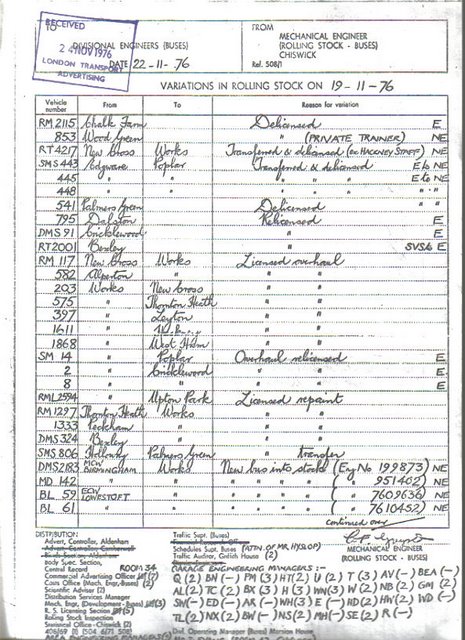 RECEIVED
24 NOV 1976
LONDON TRANSPORT
ADVERTISING
TO
DIVISIONAL ENGINEERS (BUSES)
DATE 22-11-76
FROM
MECHANICAL ENGINEER
(ROLLING STOCK - BUSES)
CHISWICK
Ref. 508/1
VARIATIONS IN ROLLING STOCK ON 19-11-76
Vehicle number From To Reason for variation
RM 2115 Chalk Farm Delicensed E
853 Wood Green " (PRIVATE TRAINER) NE
RT 4217 New Cross Works Transferred & delicensed (ex HACKNEY STAFF) NE
SMS 443 Edgware Poplar Transferred & delicensed E to NE
445 " " " " E to NE
448 " " " " " "
541 Palmers Green Delicensed E
795 Dalston Relicensed E
DMS 91 Cricklewood " E
RT 2001 Bexley " SVSA E
RM 117 New Cross Works Licensed overhaul
582 Alperton " " "
203 Works New Cross " "
575 " Thornton Heath " "
397 " Leyton " "
1611 " " "
1868 " West Ham " "
SM 14 " Poplar Overhaul relicensed E
2 " Cricklewood " " E
8 " " " " E
RML 2594 " Upton Park Licensed repaint
RM 1297 Thornton Heath Works " "
1333 Peckham " " "
DMS 324 Bexley " " "
SMS 806 Holloway Palmers Green " transfer
DMS 2183 MCW BIRMINGHAM Works New bus into stock (Eng No 199873) NE
MD 142 " " " " " ( " 951402) NE
BL 59 ECW LOWESTOFT " " " " ( " 7609636) NE
BL 61 " " " " " ( " 7610452) NE
continued over
DISTRIBUTION
Advert, Controller, Aldenham
Body Spec. Section,
Central Records ROOM 34
Commercial Advertising Officer (7)
Costs Office (Mech. Engr-Buses) (2)
Scientific Adviser (2)
Distribution Services Manager
Mech. Engr. (Development - Buses)
R. S. Licensing Section (5)
Rolling Stock Inspection
Sectional Office - Chiswick (2)
Traffic Supt. (Buses)
Schedules Supt. Buses (ATTN. OF MR. HYSLOP)
Traffic Auditor, Griffith House (2)
GARAGE ENGINEERING MANAGERS:-
MECHANICAL ENGINEER
(ROLLING STOCK - BUSES)
Q (2) BN (-) PM (3) HT (2) U (2) T (3) AV (-) BEA (-)
AL (2) TC (2) BX (3) H (3) WN (3) W (2) NB (2) GM (2)
SW (-) ED (-) AR (-) WH (3) E (-) HD (2) HW (2) WD (-)
TL (2) NX (2) BW (-) NS (2) MH (-) SE (2) R (-)